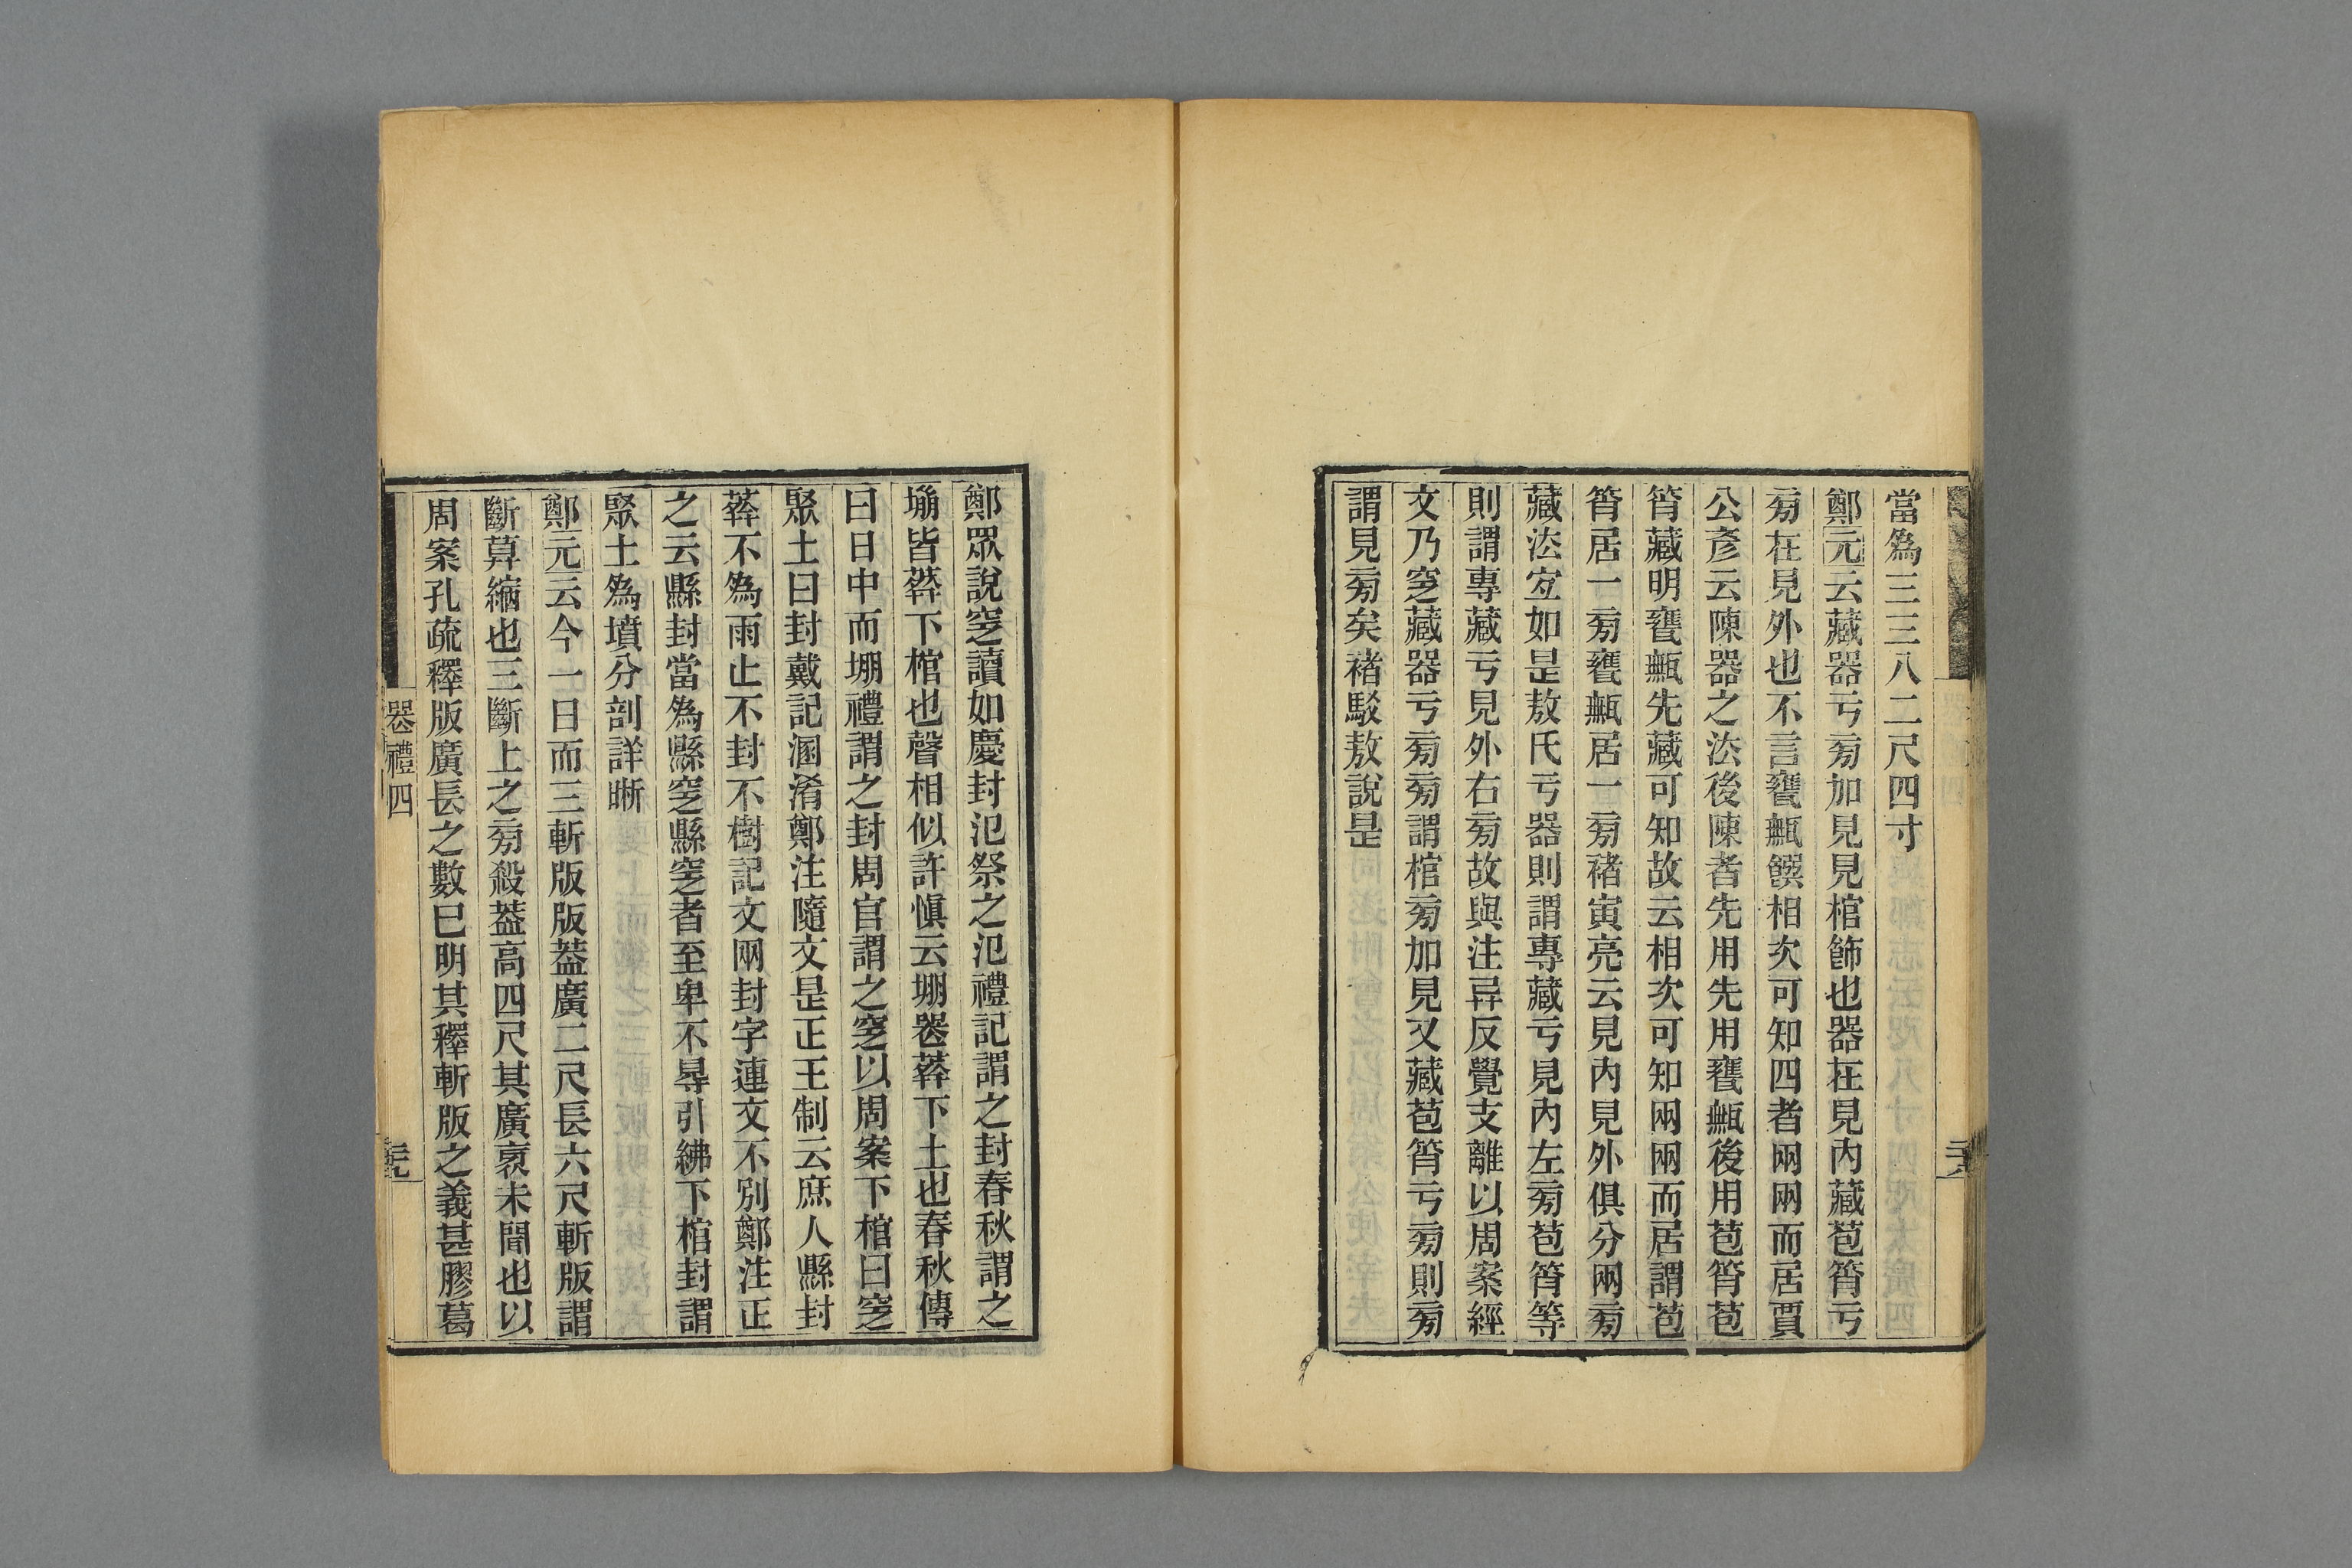 當爲三三八二尺四寸
鄭元云藏器亏旁加見見棺飾也器在見內藏苞筲亏
旁在見外也不言甕甒饌相次可知四者兩兩而居賈
公彥云陳器之法後陳者先用先用甕甒後用苞筲苞
筲藏明甕甒先藏可知故云相次可知兩兩而居謂苞
筲居一旁甕甒居一旁褚寅亮云見內見外俱分兩旁
藏法宐如是敖氏亏器則謂專藏亏見內左旁苞筲等
則謂專藏亏見外右旁故與注異反覺支離以周案經
文乃窆藏器亏旁旁謂棺旁加見又藏苞筲亏旁則旁
謂見旁矣褚駁敖說是
鄭眾說窆讀如慶封氾祭之氾禮記謂之封春秋謂之
塴皆葬下棺也聲相似許愼云堋喪葬下土也春秋傳
曰日中而堋禮謂之封周官謂之窆以周案下棺曰窆
聚土曰封戴記溷淆鄭注隨文是正王制云庶人縣封
葬不爲雨止不封不樹記文兩封字連文不別鄭注正
之云縣封當爲縣窆縣窆者至卑不㝵引紼下棺封謂
聚土爲墳分剖詳晰
鄭元云今一日而三斬版版葢廣二尺長六尺斬版謂
斷莫縮也三斷上之旁殺葢高四尺其廣袤未聞也以
周案孔疏釋版廣長之數已明其釋斬版之義甚膠葛
喪禮四